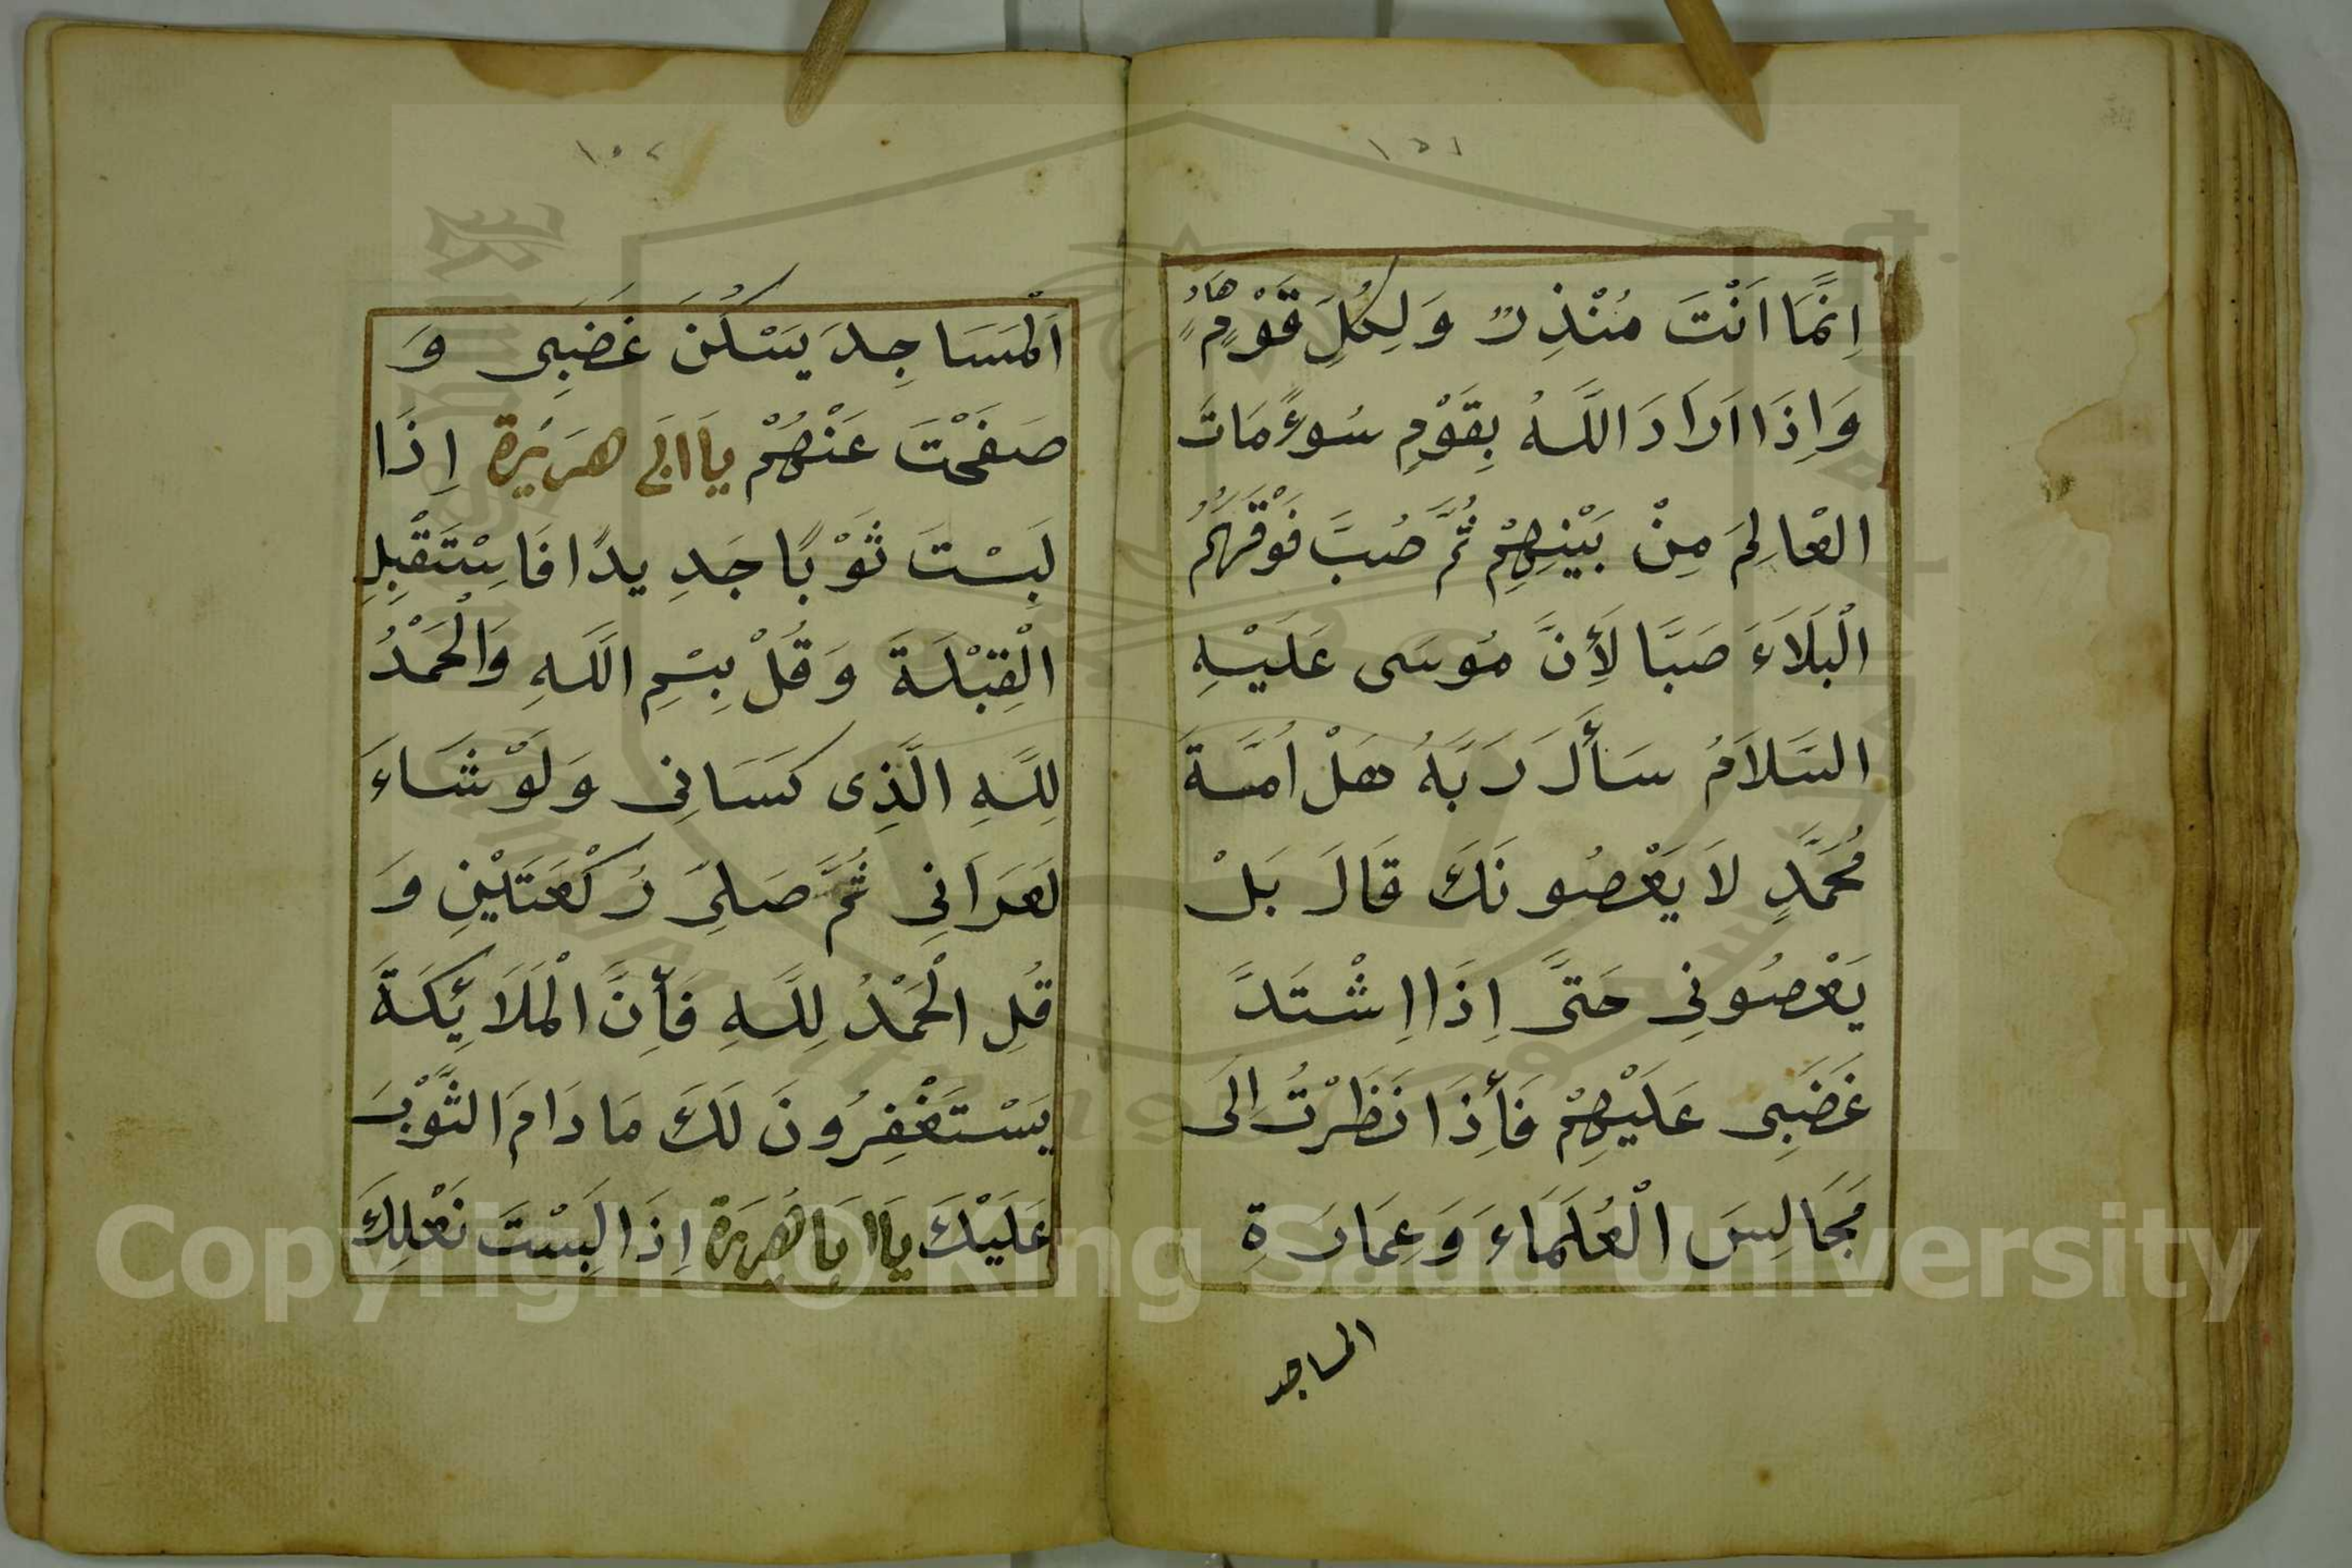 ١٥١
اِنَّمَا اَنْتَ مُنْذِرٌ وَ لِكُلِّ قَوْمٍ هَادٍ
وَاِذَا اَرَادَ اللَّهُ بِقَوْمٍ سُوءً مَاتَ
الْعَالِمَ مِنْ بَيْنِهِمْ ثُمَّ صُبَّ فَوْقَهُمُ
الْبَلَاءَ صَبًّا لَأِنَّ مُوسَى عَلَيْهِ
السَّلَامُ سَأَلَ رَبَّهُ هَلْ اُمَّةَ
مُحَمَّدٍ لَا يَعْصُونَكَ قَالَ بَلْ
يَعْصُونِى حَتَّى اِذَا اِشْتَدَّ
غَضَبِى عَلَيْهِمْ فَأِذَا نَظَرْتُ اِلَى
مَجَالِسَ الْعُلَمَاءَ وَعِمَارَةِ
المساجد
١٥٢
اَلْمَسَاجِدَ يَسْكُنُ غَضَبِى وَ
صَفَحْتَ عَنْهُمْ يَا ابَى هرَيْرَة اِذَا
لَبِسْتَ ثَوْبًا جَدِيدًا فَاسْتَقْبِلِ
الْقِبْلَةَ وَقُلْ بِسْمِ اللَّهِ وَالْحَمْدُ
لِلَّهِ الَّذِى كَسَانِى وَلَوْ شَاءَ
لَعَرَانِى ثُمَّ صَلِّى رَكْعَتَيْنِ وَ
قُلِ الْحَمْدُ لِلَّهِ فَأِنَّ الْمَلَائِكَةَ
يَسْتَغْفِرُونَ لَكَ مَا دَامَ الثَّوْبَ
عَلَيْكَ يَا ابَا هُرَيرَة اِذَا لَبِسْتَ نَعْلِكَ
Copyright © King Saud University